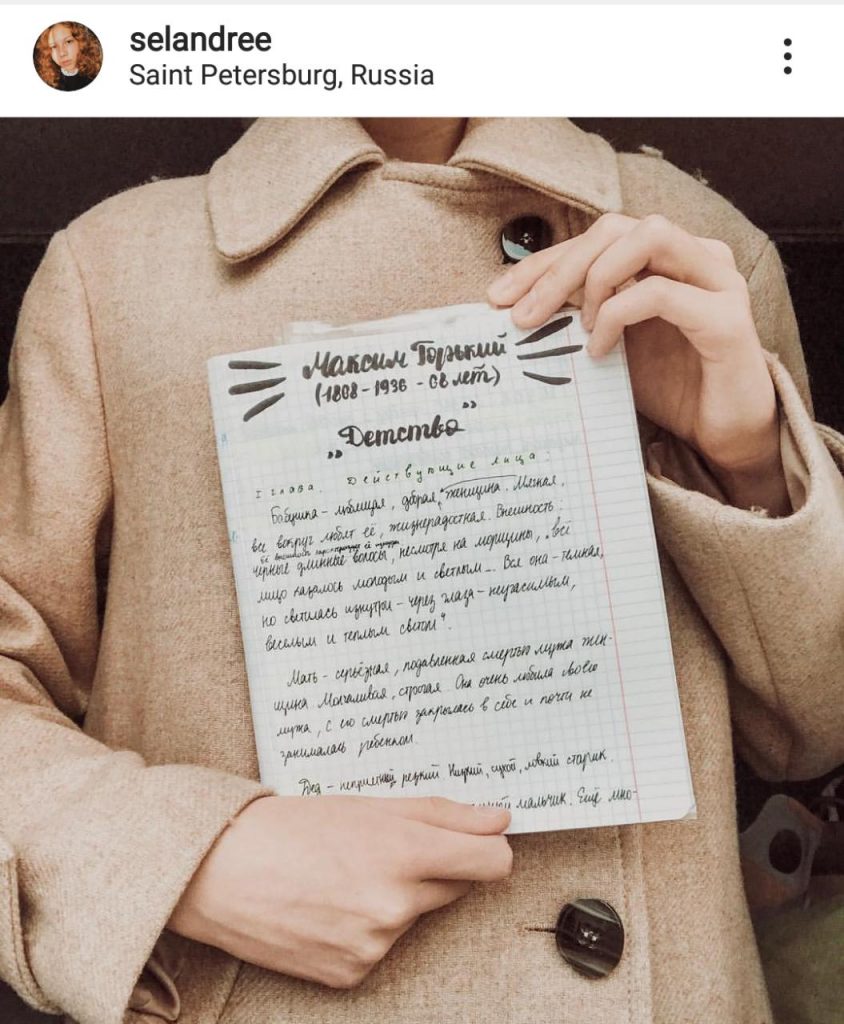 selandree
Saint Petersburg, Russia
Максим Горький
(1868 - 1936 - 68 лет)
„Детство”
I глава. Действующие лица:
Бабушка - любящая, добрая женщина. Мягкая,
все вокруг любят её, жизнерадостная. Внешность:
её
чёрные длинные волосы, несмотря на морщины, „всё
лицо казалось молодым и светлым... Вся она - тёмная,
но светилась изнутри - через глаза - неугасимым,
весёлым и тёплым светом“.
Мать - серьёзная, подавленная смертью мужа жен-
щина. Молчаливая, строгая. Она очень любила своего
мужа, с его смертью закрылась в себе и почти не
занималась ребёнком.
Дед - неприятный, резкий. Низкий, сухой, ловкий старик.
мальчик. Ещё мно-